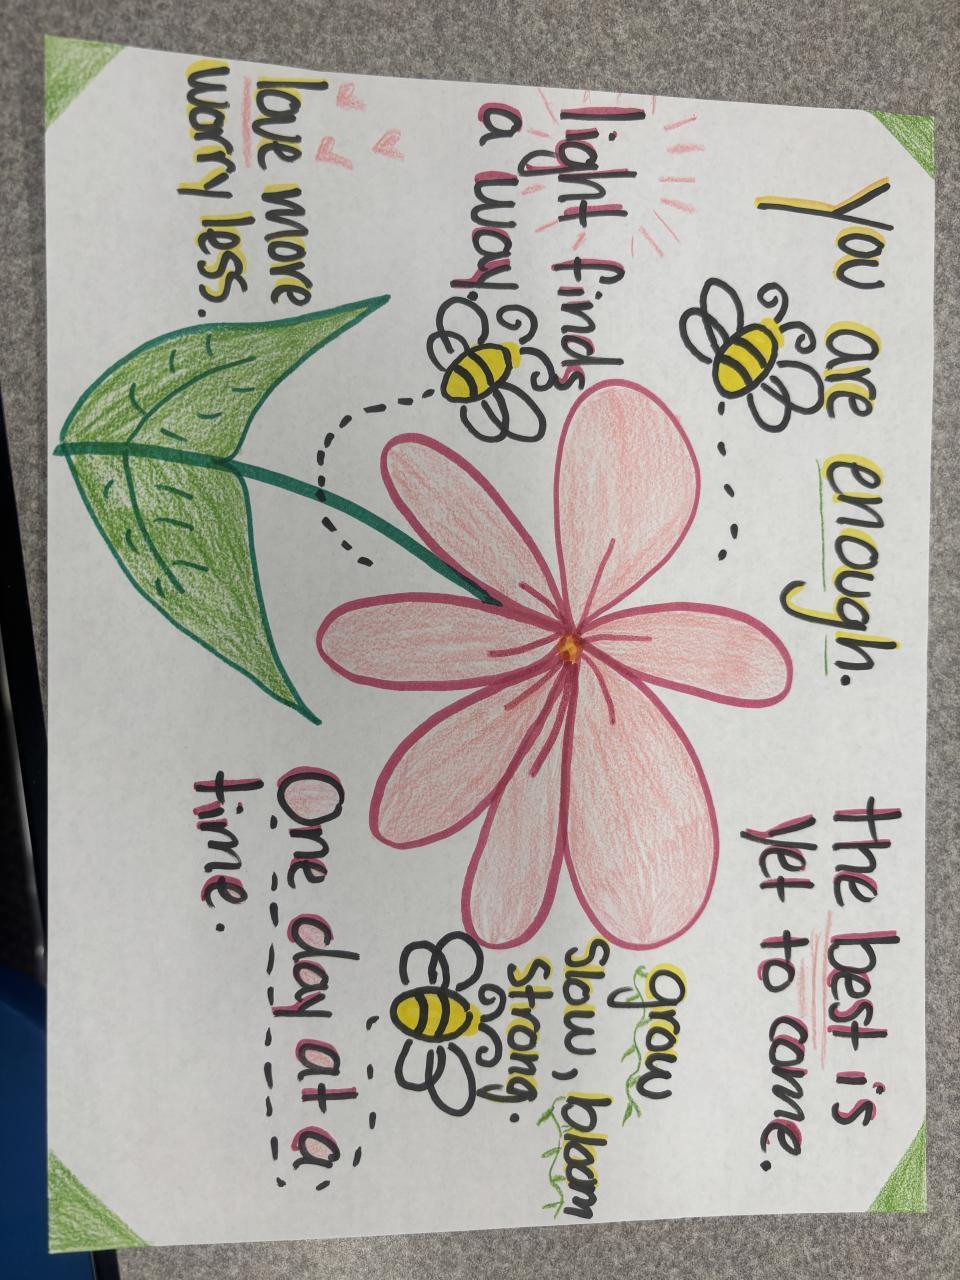 You are enough.
the best is
yet to come.
light finds
a way.
grow
slow, bloom
strong.
love more
worry less.
One day at a
time.